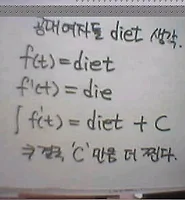 공대여자들 diet 생각.
f(t) = diet
f'(t) = die
∫f'(t) = diet + C
⇒ 결국 'C' 만큼 더 찐다.